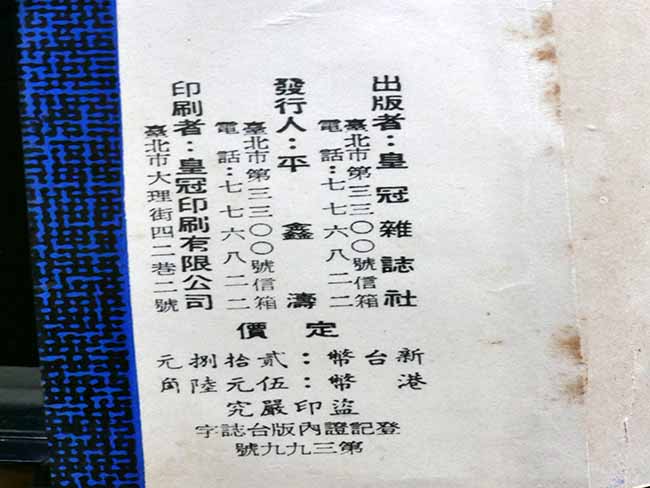 出版者：皇冠雜誌社
臺北市第三三〇〇號信箱
電話：七七六八二二
發行人：平鑫濤
臺北市第三三〇〇號信箱
電話：七七六八二二
印刷者：皇冠印刷有限公司
臺北市大理街四二巷二號
定價
新台幣：貳拾捌元
港幣：伍元陸角
盜印嚴究
登記證內版台誌字
第三九九號